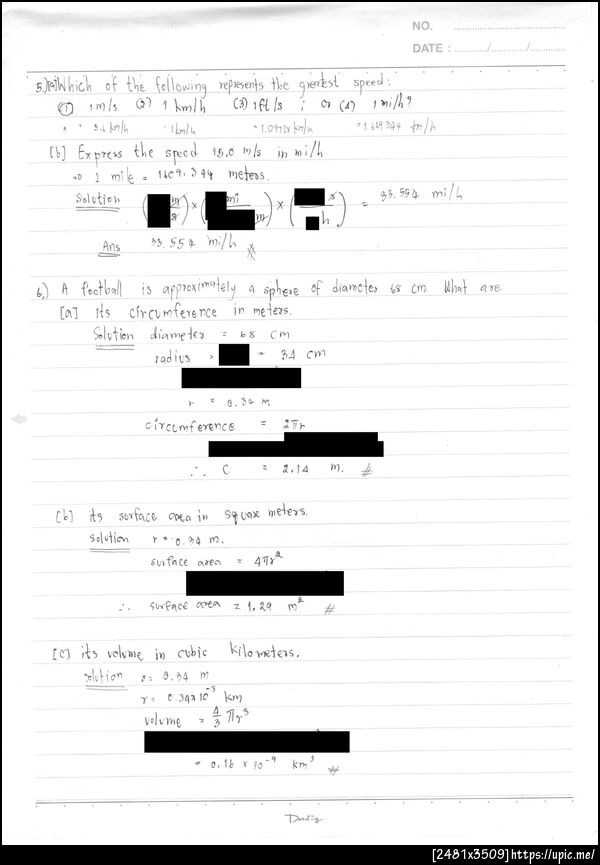 NO.
DATE : / /
5.) [a] Which of the following represents the greatest speed :
(1) 1 m/s (2) 1 km/h (3) 1 ft/s ; or (4) 1 mi/h ?
= 3.6 km/h = 1 km/h = 1.09728 km/h = 1.609344 km/h
[b] Express the speed 15,0 m/s in mi/h
1 mile = 1609,344 meters.
Solution ( m/s ) × ( mi / m ) × ( s / h ) = 33.554 mi/h
Ans 33.554 mi/h
6.) A football is approximately a sphere of diameter 68 cm. What are
[a] its circumference in meters.
Solution diameter = 68 cm
radius = = 34 cm
r = 0.34 m
circumference = 2πr
∴ C = 2.14 m. #
[b] its surface area in square meters.
Solution r = 0.34 m.
surface area = 4πr²
∴ surface area = 1.29 m² #
[c] its volume in cubic kilometers.
Solution r = 0.34 m
r = 0.34×10⁻³ km
volume = 4/3 πr³
= 0.16 × 10⁻⁹ km³ #
[2481x3509]https://upic.me/